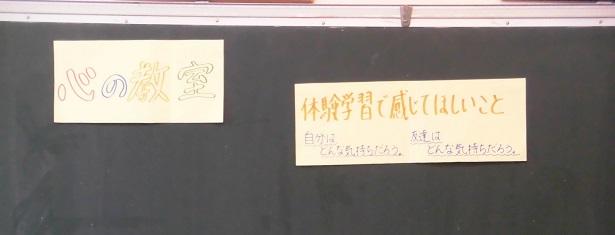 心の教室
体験学習で感じてほしいこと
自分は
どんな気持ちだろう。
友達は
どんな気持ちだろう。